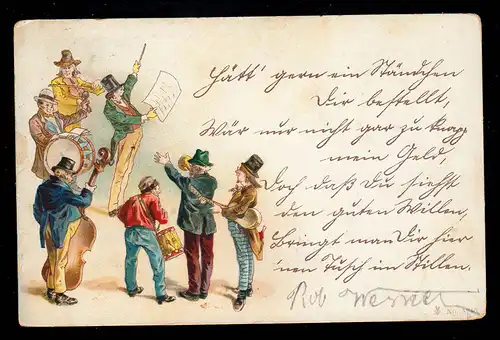 Hätt' gern ein Ständchen
Dir bestellt,
Wär nur nicht gar zu knapp
mein Geld,
Doch daß Du siehst
den guten Willen,
Bringt man Dir hier
'nen Tusch im Stillen.
Rob